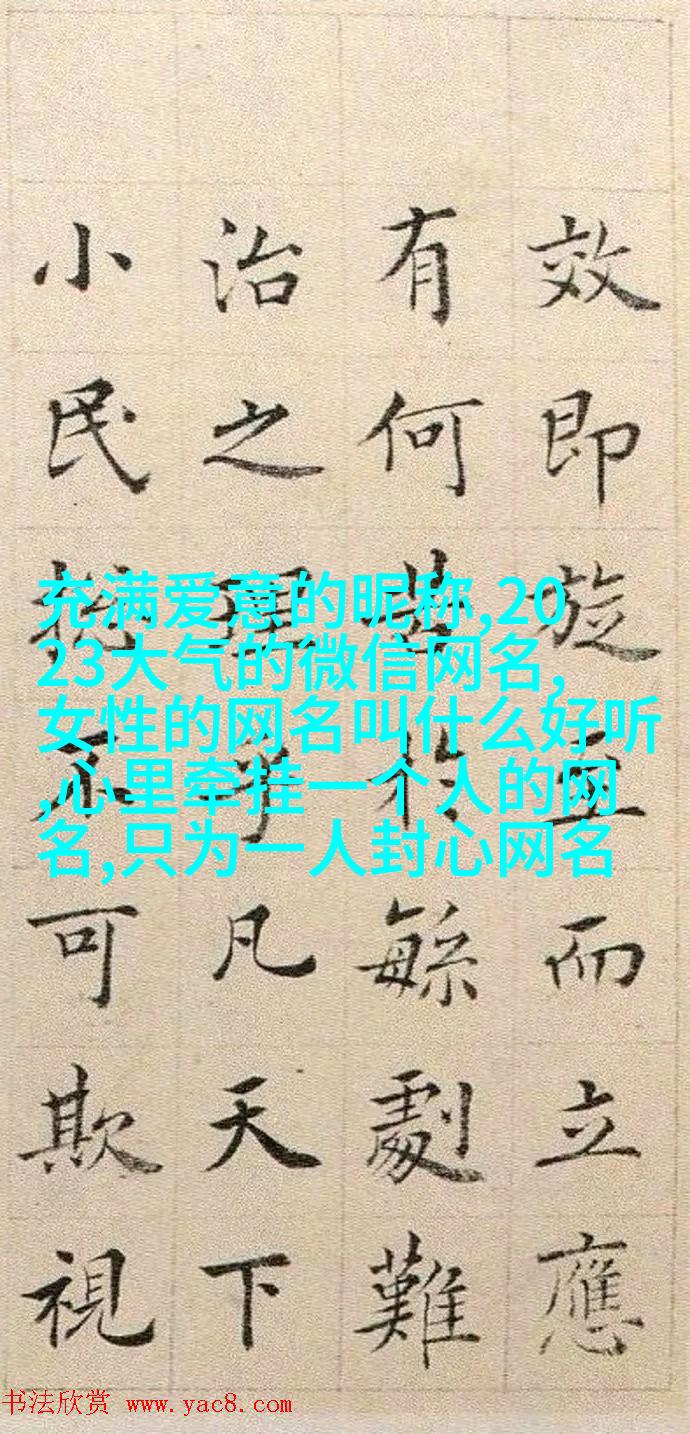 效即旋而立應
有何於緐劇難
治之理乎凡天下
小民不可欺視
充满爱意的昵称,20
23大气的微信网名,
女性的网名叫什么好听
,心里牵挂一个人的网
名,只为一人封心网名
书法欣赏 www.yac8.com